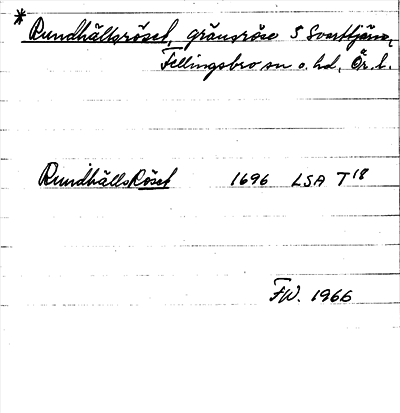 * Rundhällsröset, gränsröse S Svarttjärn,
Fellingsbro sn o. hd, Ör. l.
RundhällsRöset 1696 LSA T 18
FW. 1966